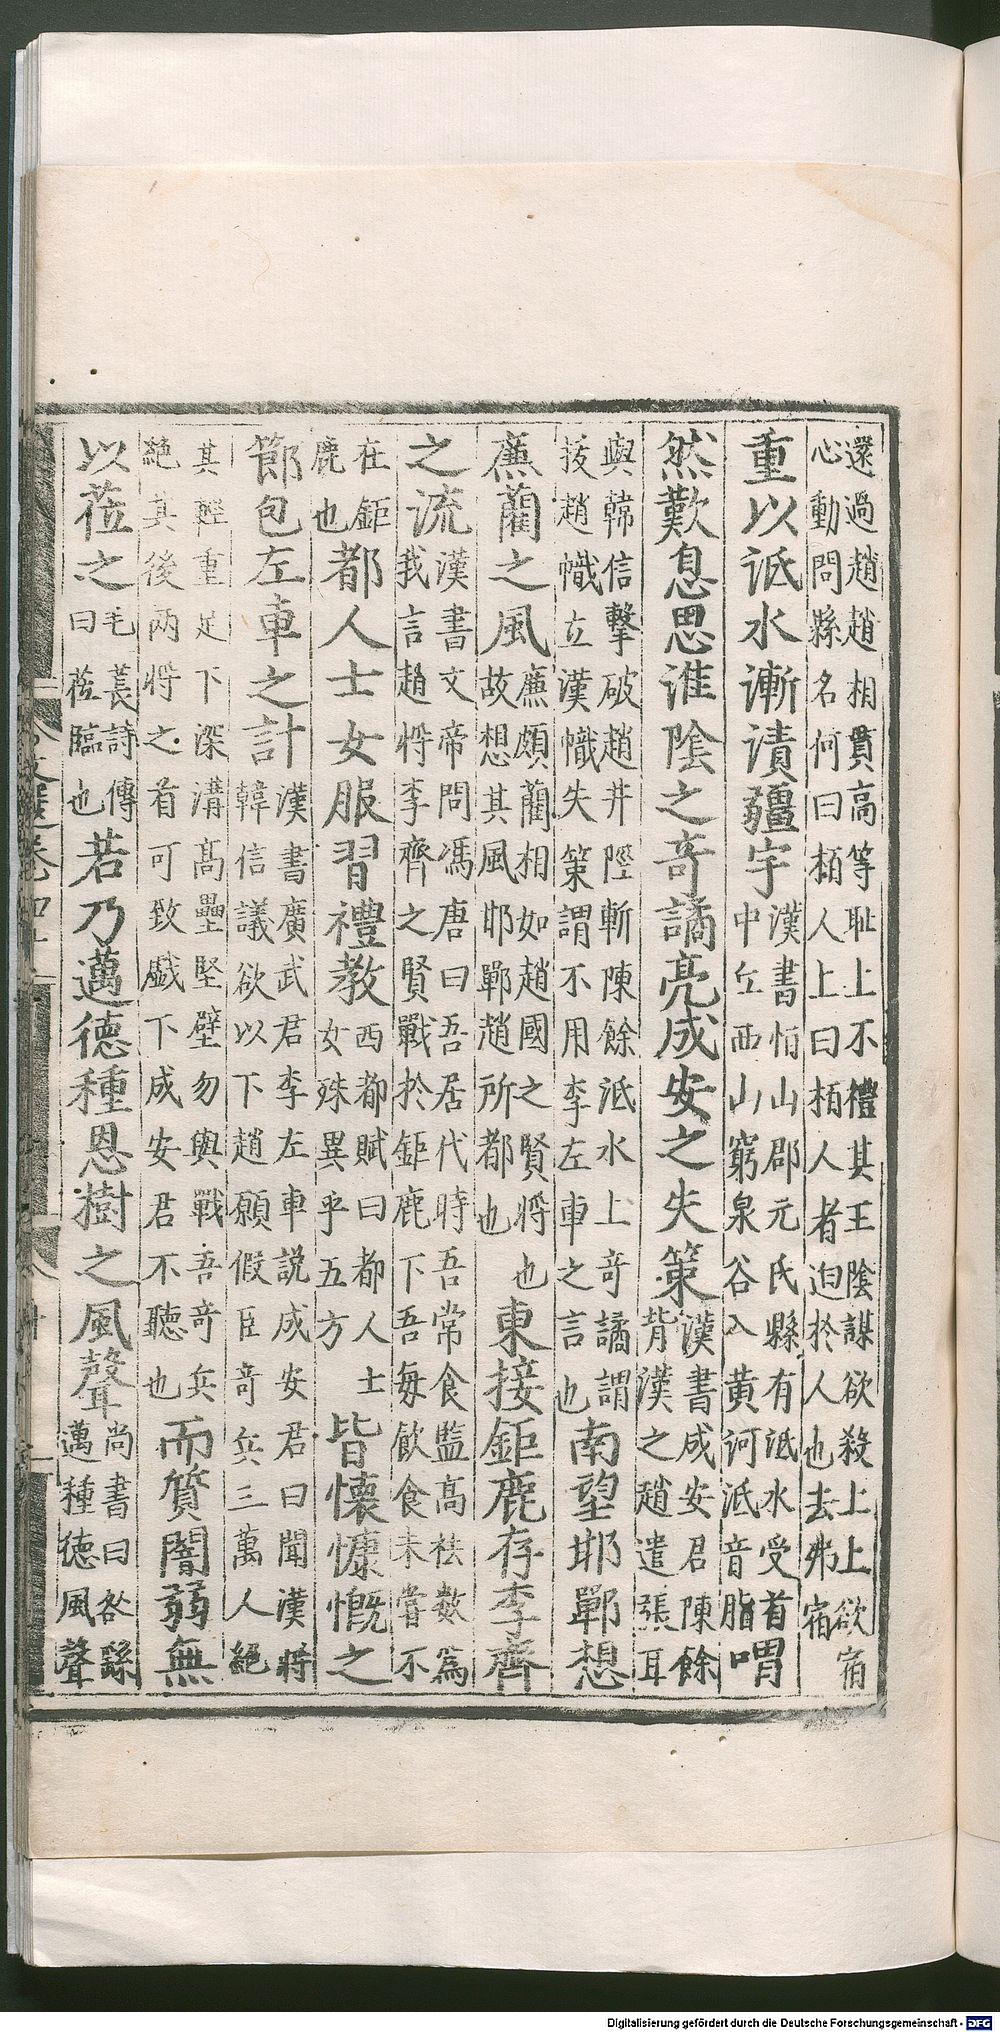 還過趙趙相貫高等恥上不禮其王陰謀欲殺上上欲宿
心動問縣名何曰栢人上曰栢人者迫於人也去弗宿
重以泜水漸漬疆宇
漢書恒山郡元氏縣有泜水受首
中丘西山窮泉谷入黃河泜音脂
喟
然歎息思淮陰之奇譎亮成安之失策
漢書成安君陳餘
背漢之趙遣張耳
與韓信擊破趙井陘斬陳餘泜水上奇譎謂
拔趙幟立漢幟失策謂不用李左車之言也
南望邯鄲想
廉藺之風
廉頗藺相如趙國之賢將也
故想其風邯鄲趙所都也
東接鉅鹿存李齊
之流
漢書文帝問馮唐曰吾居代時吾常食監高袪數為
我言趙將李齊之賢戰於鉅鹿下吾每飲食未嘗不
在鉅
鹿也
都人士女服習禮教
西都賦曰都人士
女殊異乎五方
皆懷慷慨之
節包左車之計
漢書廣武君李左車說成安君曰聞漢將
韓信議欲以下趙願假臣奇兵三萬人絕
其輕重足下深溝高壘堅壁勿與戰吾奇兵
絕其後兩將之首可致戲下成安君不聽也
而質闇弱無
以莅之
毛萇詩傳
曰莅臨也
若乃邁德種恩樹之風聲
尚書曰咎繇
邁種德風聲
文選卷四十
Digitalisierung gefördert durch die Deutsche Forschungsgemeinschaft - DFG